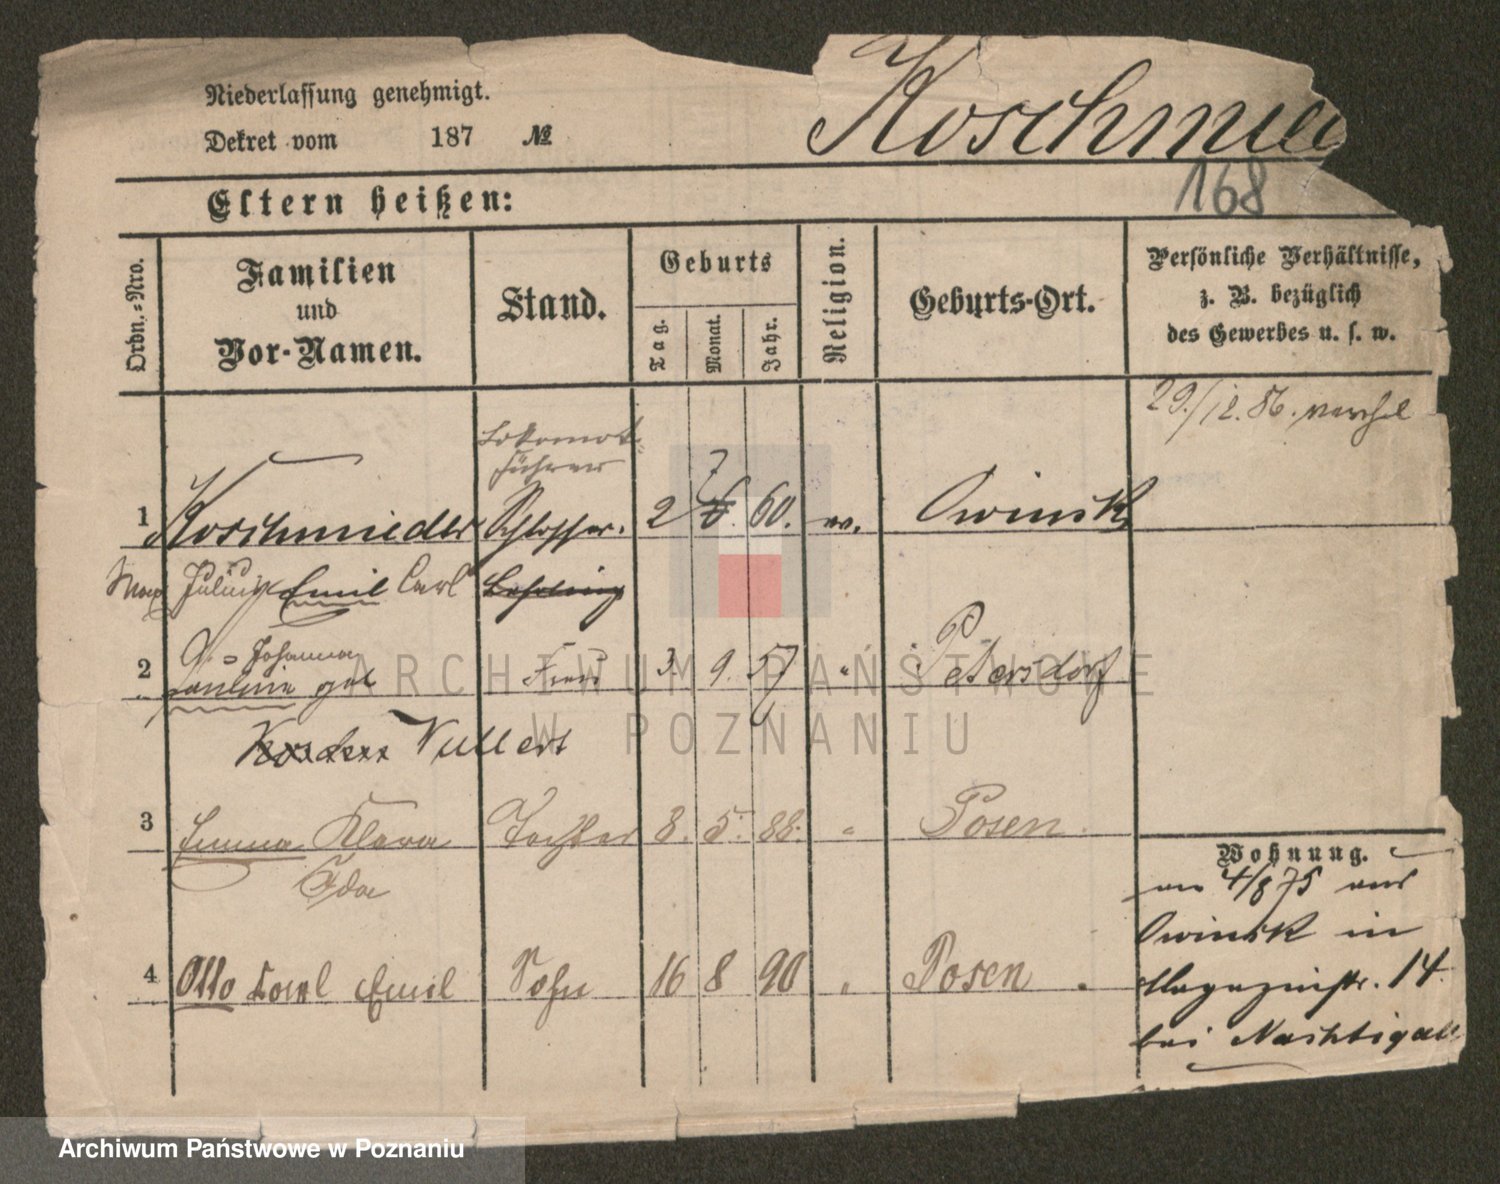 Niederlassung genehmigt.
Dekret vom 187 №
Koschmie
168
Eltern heißen:
Ordn.-Nro.
Familien und Vor-Namen.
Stand.
Geburts
Tag.
Monat.
Jahr.
Religion.
Geburts-Ort.
Persönliche Verhältnisse,
z. B. bezüglich
des Gewerbes u. s. w.
29./12. 86.
Lokomot.
führer
7
1 Koschmieder Schlosser. 2 6. 60. ev. Owinsk
Max Julius Emil Carl Lehrling
2 Johanna
Pauline geb Frau 3. 9. 57 " Petersdorf
Vullert
3 Emma Klara Tochter 8. 5. 88. " Posen
Ida
4 Otto Karl Emil Sohn 16 8 90 " Posen
Wohnung.
am 4/8 75 aus
Owinsk in
Magazinstr. 14.
bei Nachtigall
ARCHIWUM PAŃSTWOWE
W POZNANIU
Archiwum Państwowe w Poznaniu